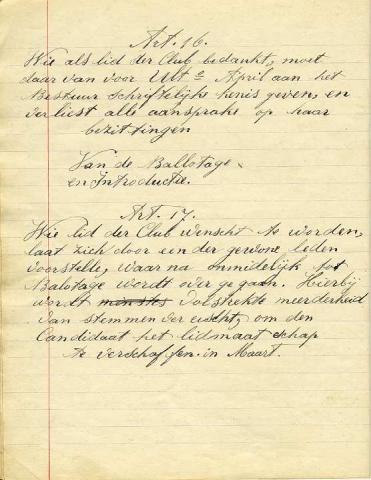 Art. 16.
Wie als lid der Club bedankt, moet
daar van voor Ult. April aan het
Bestuur schriftelijke kenis geven, en
verliest alle aansprake op haar
bezittingen
Van de Ballotage
en Introductie.
Art. 17.
Wie lid der Club wenscht te worden,
laat zich door een der gewone leden
voorstelle, waar na onmidelijk tot
Balotage wordt over gegaan. Hierbij
wordt volstrekte meerderheid
van stemmen ver eischt, om den
Candidaat het lidmaat schap
te verschaffen. in Maart.